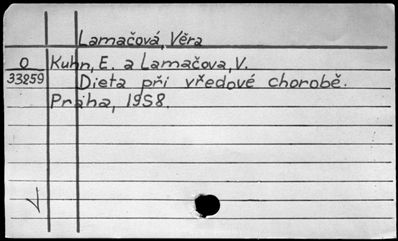 Lamačová, Věra
O Kuhn, E. a Lamačova, V.
33259 Dieta při vředové chorobě.
Praha, 1958.